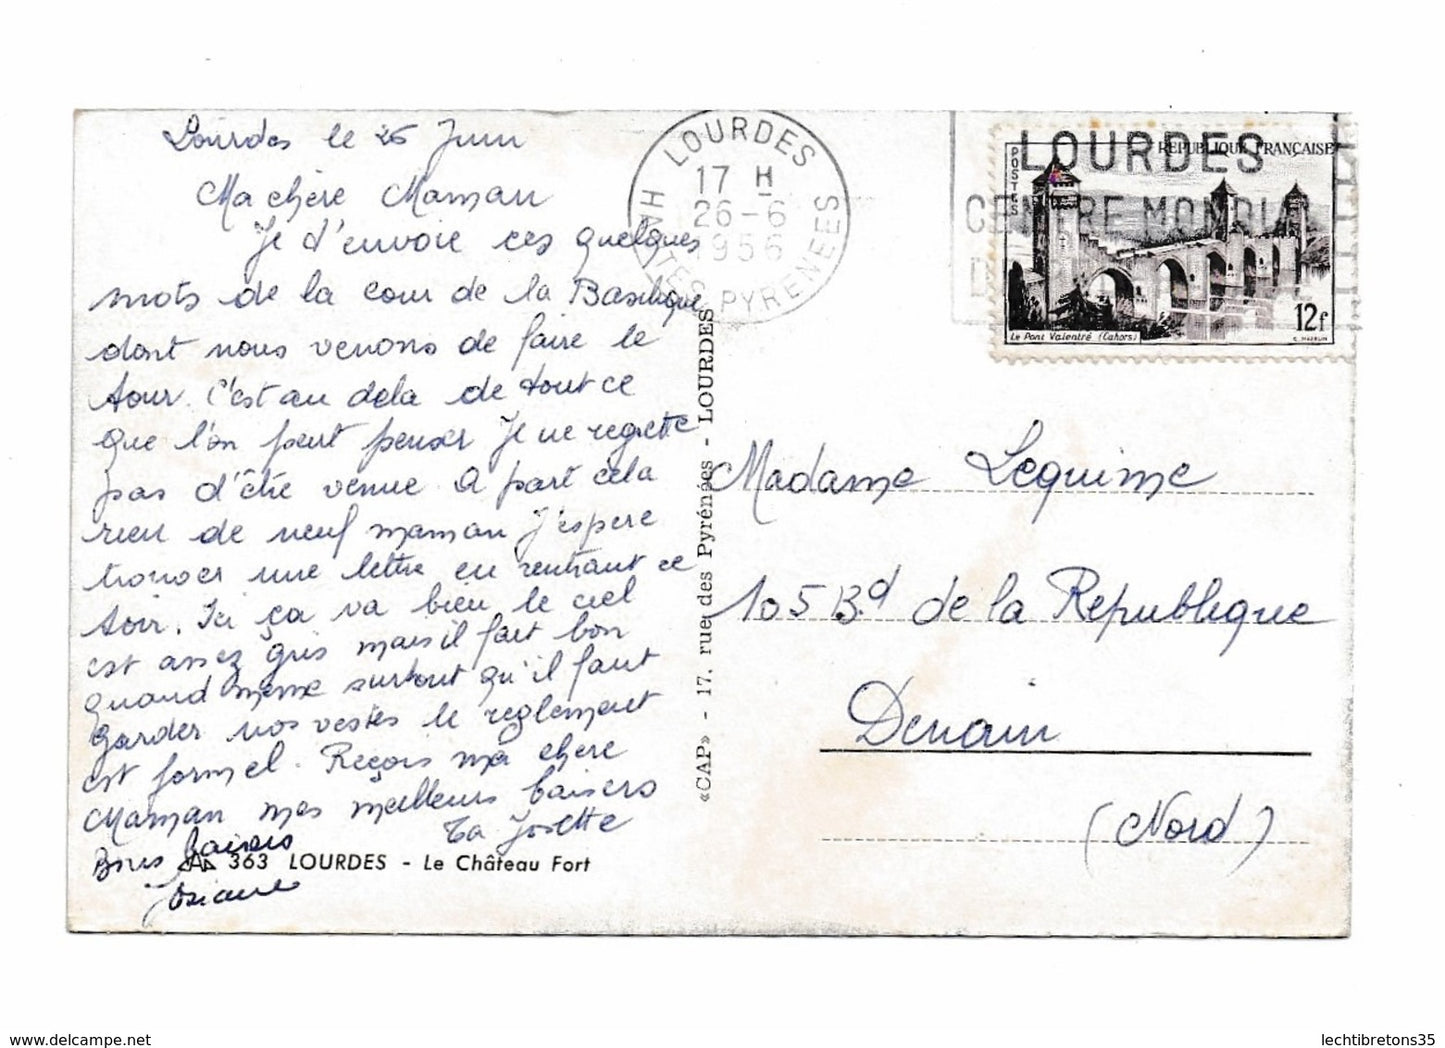 Lourdes le 26 Juin
Ma chère Maman
Je t'envoie ces quelques
mots de la cour de la Basilique
dont nous venons de faire le
tour. C'est au dela de tout ce
que l'on peut penser Je ne regrette
pas d'être venue. A part cela
rien de neuf maman J'espere
trouver une lettre en rentrant ce
soir. Ici ça va bien le ciel
est assez gris mais il fait bon
quand meme surtout qu'il faut
garder nos vestes le reglement
est formel. Reçois ma chere
Maman mes meilleurs baisers
Ta Josette
Bons baisers
Josiane
363 LOURDES - Le Château Fort
«CAP» - 17, rue des Pyrénées - LOURDES
LOURDES
17 H
26-6
1956
HAUTES PYRENEES
LOURDES
CENTRE MONDIAL
POSTES
REPUBLIQUE FRANÇAISE
12f
Le Pont Valentré (Cahors)
C. MAZELIN
Madame Lequime
105 Bd de la Republique
Denain
(Nord)
lechtibretons35